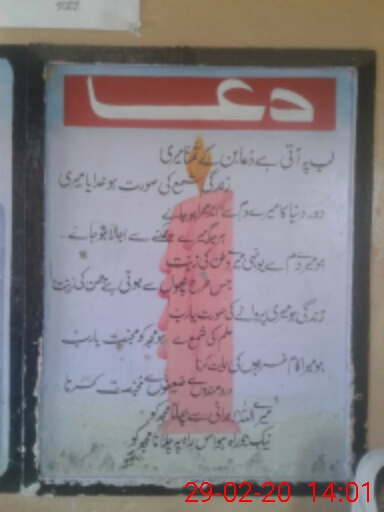 دعا
لب پہ آتی ہے دعا بن کے تمنا میری
زندگی شمع کی صورت ہو خدایا میری
دور دنیا کا میرے دم سے اندھیرا ہو جائے
ہر جگہ میرے چمکنے سے اجالا ہو جائے۔
ہو میرے دم سے یونہی میرے وطن کی زینت
جس طرح پھول سے ہوتی ہے چمن کی زینت
زندگی ہو میری پروانے کی صورت یارب
علم کی شمع سے ہو مجھ کو محبت یارب
ہو میرا کام غریبوں کی حمایت کرنا
دردمندوں سے ضعیفوں سے محبت کرنا
میرے اللہ! برائی سے بچانا مجھ کو
نیک جو راہ ہو اس راہ پہ چلانا مجھ کو
29-02-20 14:01